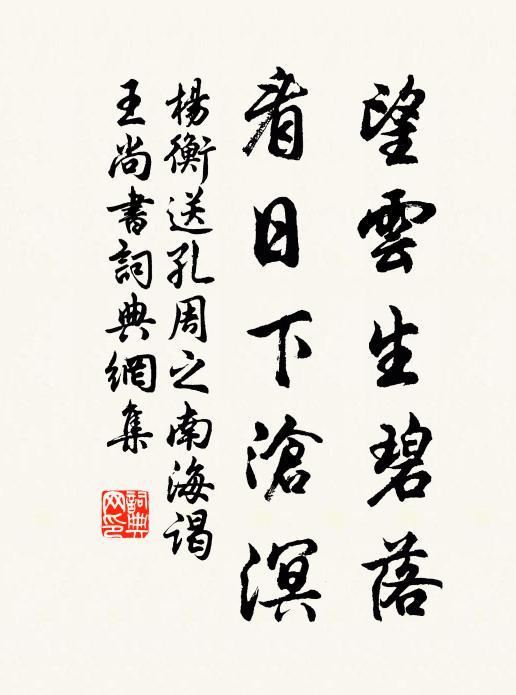 望雲生碧落
看日下滄溟
楊衡送孔周之南海謁
王尚書詞典網集
詞典
网印